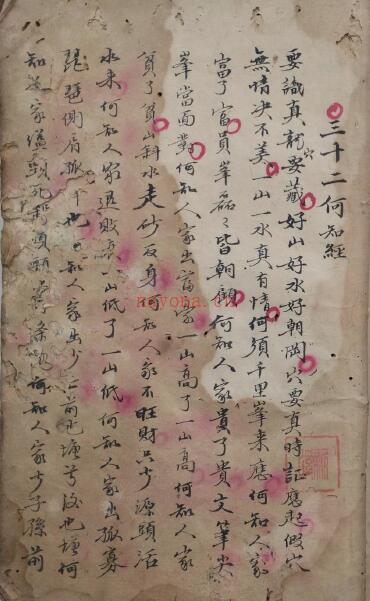 三十二何知經
要識真龍要藏好山好水好朝岡穴要真時証應起假穴
無情決不美一山一水真有情何須千里峯來應何知人家
富了富員峯磊々皆朝顧何知人家貴了貴文筆尖
峯當面對何知人家出富家一山高了一山高何知人家
貧了貧山斜水走砂反身何知人家不旺財只少源頭活
水来何知人家退敗一山低了一山低何知人家出孤寡
琵琶側扇孤 也 知人家出少亡前也塘兮後也塘何
知人家 死 何知人家少子孫前